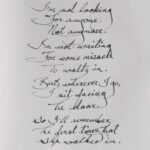 I'm not looking
For anyone.
Not anymore.
I'm not waiting
For some miracle
To waltz in.
But wherever I go,
I sit facing
the door.
So I'll remember
The first time that
she walked in.